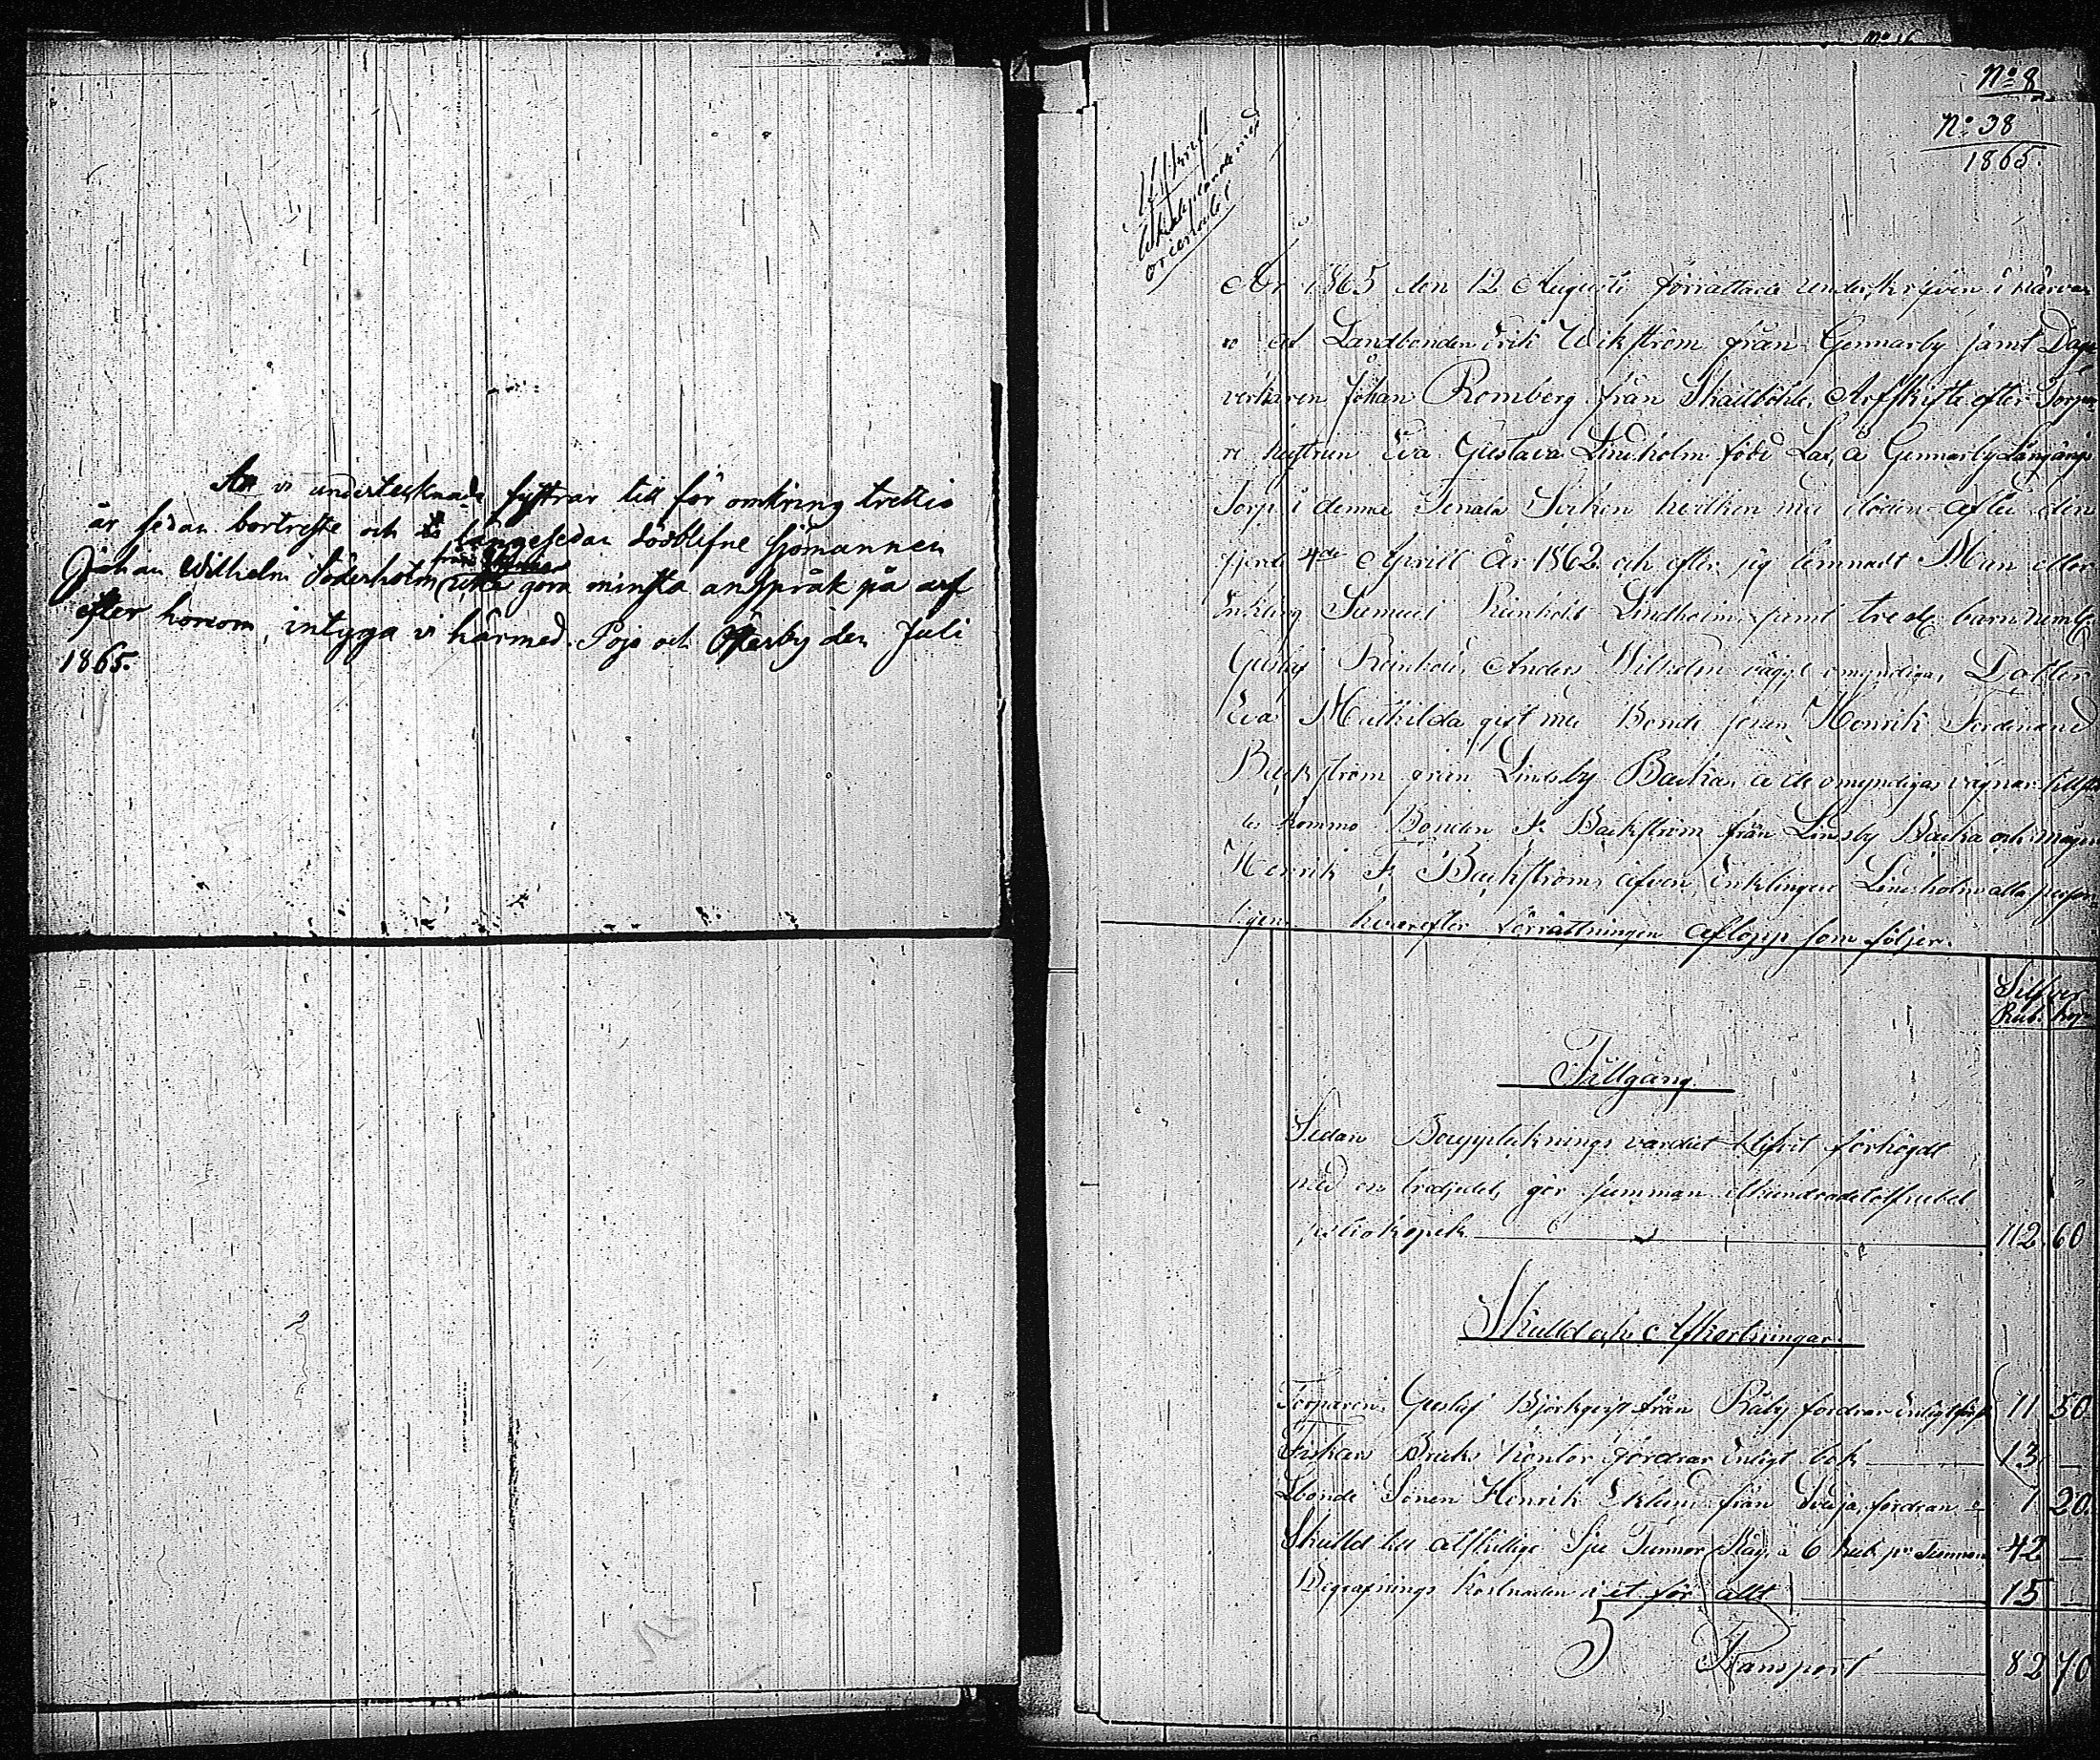 Att vi undertecknade systrar till för omkring trettio
år sedan bortreste och längesedan dödblifne sjömannen
från
Johan Wilhelm Söderholm icke göra minsta anspråk på arf
efter honom, intyga vi härmed. Pojo och Österby den Juli
1865.
No 8
No 38
1865.
År 1865 den 12 Augusti förrättade undertecknad i närva
ro af Landbonden Erik Wikström från Gennarby jämt Dags
verkaren Johan Romberg från Skallböhle, Arfskifte efter Torpa
re hustrun Eva Gustava Lindholm född Lax, å Gennarby Långängs
Torp i denna Tenala Socken hvilken med döden afled den
fjerde 4de Aprill År 1862 och efter sig lemnadt Man eller
Enkling Samuel Reinhold Lindholm, jämt tresk barn neml
Gustaf Reinhold, Anders Wilhelm omyndiga, Dotter
Eva Mathilda gift med Bonde sonen Henrik Ferdinand
Backström från Lindsby Backa, å de omyndigas vägnar
kommo Bonden F. Backström från Lindsby Backa och mågen
Henrik F. Backström, äfven Enklingen Lindholm alla person
ligen hvarefter förrättningen aflopp som följer.
Silfver
Rub. kop.
Tillgång.
Sedan Bouppteknings värdet blifvit förhögdt
med en tredjedel, gör summan Etthundradetolf rubel
sextio kopek 112 60
Skulld och Afkortningar.
Torparen Gustaf Björkqvist från Råby fordrar Enligt 11 50
Fiskars Bruks kontor fordrar Enligt bok 13 —
Lbonde Sonen Henrik Eklund från fordran 1 20
Skulld till Sju Tunnor Råg a 6 Rub pr Tunnan 42 —
Begrafnings kostnaden i et för allt 15 —
Transport 82 70